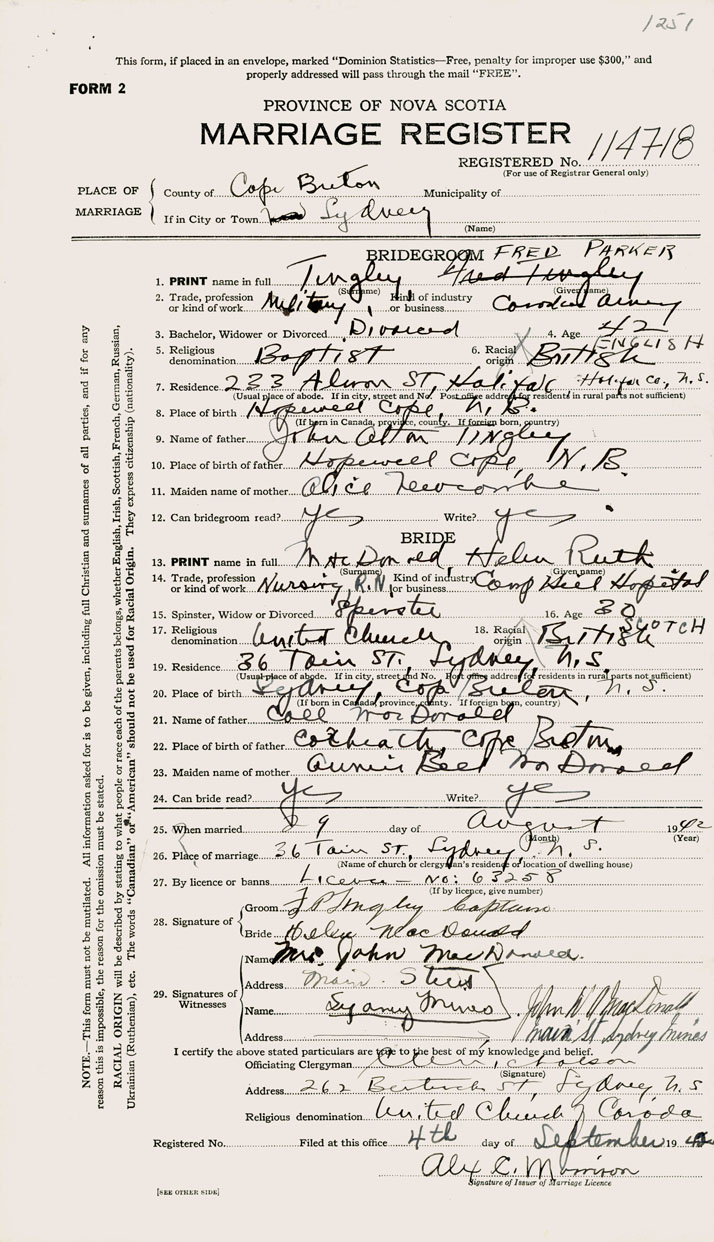 1251
This form, if placed in an envelope, marked "Dominion Statistics—Free, penalty for improper use $300," and
properly addressed will pass through the mail "FREE".
FORM 2
PROVINCE OF NOVA SCOTIA
MARRIAGE REGISTER
REGISTERED No. 114718
(For use of Registrar General only)
PLACE OF MARRIAGE
County of Cape Breton Municipality of
If in City or Town Sydney
(Name)
BRIDEGROOM FRED PARKER
1. PRINT name in full Tingley Fred Tingley
(Surname) (Given name)
2. Trade, profession or kind of work Military Kind of industry or business Canadian Army
3. Bachelor, Widower or Divorced Divorced 4. Age 42
ENGLISH
5. Religious denomination Baptist 6. Racial origin British
7. Residence 233 St, Halifax Halifax Co, N.S.
(Usual place of abode. If in city, street and No. Post office address for residents in rural parts not sufficient)
8. Place of birth Hopewell Cape, N.B.
(If born in Canada, province, county. If foreign born, country)
9. Name of father John Tingley
10. Place of birth of father Hopewell Cape, N.B.
11. Maiden name of mother Alice Newcombe
12. Can bridegroom read? yes Write? yes
BRIDE
13. PRINT name in full MacDonald, Helen Ruth
(Surname) (Given name)
14. Trade, profession or kind of work Nursing, R.N. Kind of industry or business Camp Hill Hospital
15. Spinster, Widow or Divorced Spinster 16. Age 30
SCOTCH
17. Religious denomination United Church 18. Racial origin British
19. Residence 36 St., Sydney, N.S.
(Usual place of abode. If in city, street and No. Post office address for residents in rural parts not sufficient)
20. Place of birth Sydney, Cape Breton, N.S.
(If born in Canada, province, county. If foreign born, country)
21. Name of father MacDonald
22. Place of birth of father Coxheath, Cape Breton
23. Maiden name of mother Annie Bell MacDonald
24. Can bride read? yes Write? yes
25. When married 29 day of August 1942
(Month) (Year)
26. Place of marriage 36 St, Sydney, N.S.
(Name of church or clergyman's residence or location of dwelling house)
27. By licence or banns Licence – No: 63258
(If by licence, give number)
28. Signature of Groom F P Tingley Captain
Bride Helen MacDonald
29. Signatures of Witnesses
Name Mrs. John MacDonald.
Address Main Street
Name Sydney Mines John MacDonald
Address Main St Sydney Mines
I certify the above stated particulars are true to the best of my knowledge and belief.
Officiating Clergyman
(Signature)
Address 262 St, Sydney N.S
Religious denomination United Church of Canada
Registered No. Filed at this office 4th day of September 1942
Alex C. Morrison
Signature of Issuer of Marriage Licence
[SEE OTHER SIDE]
NOTE.—This form must not be mutilated. All information asked for is to be given, including full Christian and surnames of all parties, and if for any
reason this is impossible, the reason for the omission must be stated.
RACIAL ORIGIN will be described by stating to what people or race each of the parents belongs, whether English, Irish, Scottish, French, German, Russian,
Ukrainian (Ruthenian), etc. The words "Canadian" or "American" should not be used for Racial Origin. They express citizenship (nationality).